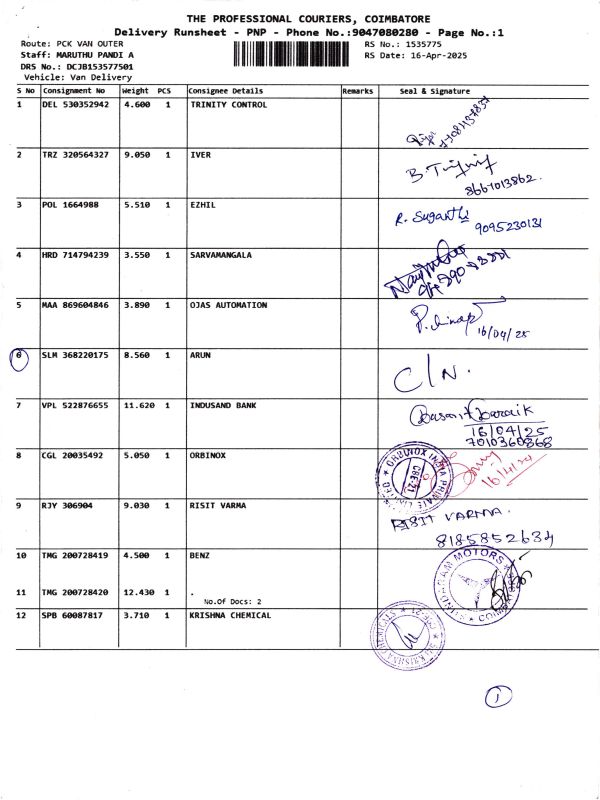 THE PROFESSIONAL COURIERS, COIMBATORE
Delivery Runsheet - PNP - Phone No.:9047080280 - Page No.:1
Route: PCK VAN OUTER
RS No.: 1535775
Staff: MARUTHU PANDI A
RS Date: 16-Apr-2025
DRS No.: DCJB153577501
Vehicle: Van Delivery
S No Consignment No Weight PCS Consignee Details Remarks Seal & Signature
1 DEL 530352942 4.600 1 TRINITY CONTROL
2 TRZ 320564327 9.050 1 IVER
8667013862.
3 POL 1664988 5.510 1 EZHIL
R. Suganthi 9095230131
4 HRD 714794239 3.550 1 SARVAMANGALA
5 MAA 869604846 3.890 1 OJAS AUTOMATION
16/04/25
6 SLM 368220175 8.560 1 ARUN
C/N.
7 VPL 522876655 11.620 1 INDUSAND BANK
16/04/25
7010360868
8 CGL 20035492 5.050 1 ORBINOX
ORBINOX INDIA PRIVATE LIMITED
CBE-21
9 RJY 306904 9.030 1 RISIT VARMA
RISIT VARMA.
8185852634
10 TMG 200728419 4.500 1 BENZ
SUNDARAM MOTORS
11 TMG 200728420 12.430 1 .
No.Of Docs: 2
12 SPB 60087817 3.710 1 KRISHNA CHEMICAL
SRI KRISHNA CHEMICALS
1